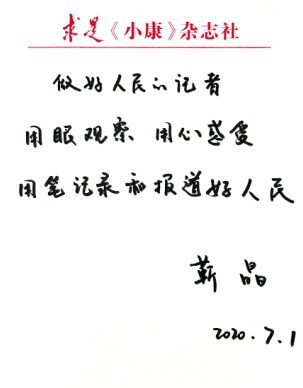 求是《小康》杂志社
做好人民的记者
用眼观察 用心感受
用笔记录和报道好人民
靳晶
2020.7.1